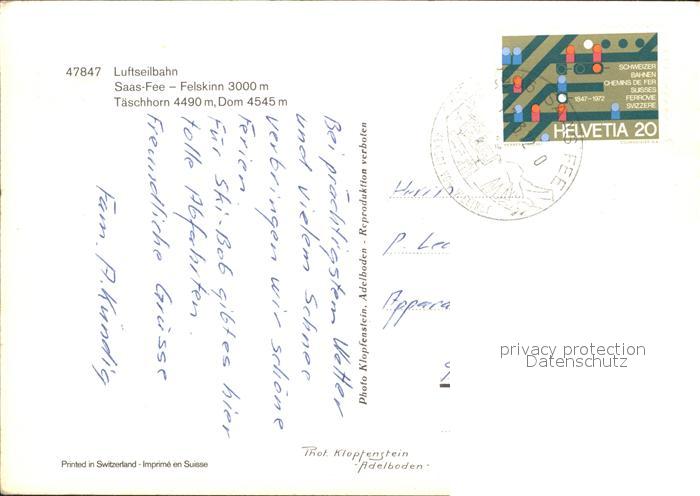 47847 Luftseilbahn
Saas-Fee – Felskinn 3000 m
Täschhorn 4490 m, Dom 4545 m
Bei prächtigstem Wetter
und vielem Schnee
verbringen wir schöne
Ferien.
Für Ski-Bob gibt es hier
tolle Abfahrten.
Freundliche Grüsse
Fam. A. Kündig
Photo Klopfenstein, Adelboden - Reproduktion verboten
SCHWEIZER
BAHNEN
CHEMINS DE FER
SUISSES
FERROVIE
SVIZZERE
1847-1972
HELVETIA 20
SAAS-FEE
Herrn
P.
Appara
privacy protection
Datenschutz
Printed in Switzerland - Imprimé en Suisse
Phot. Klopfenstein
- Adelboden -